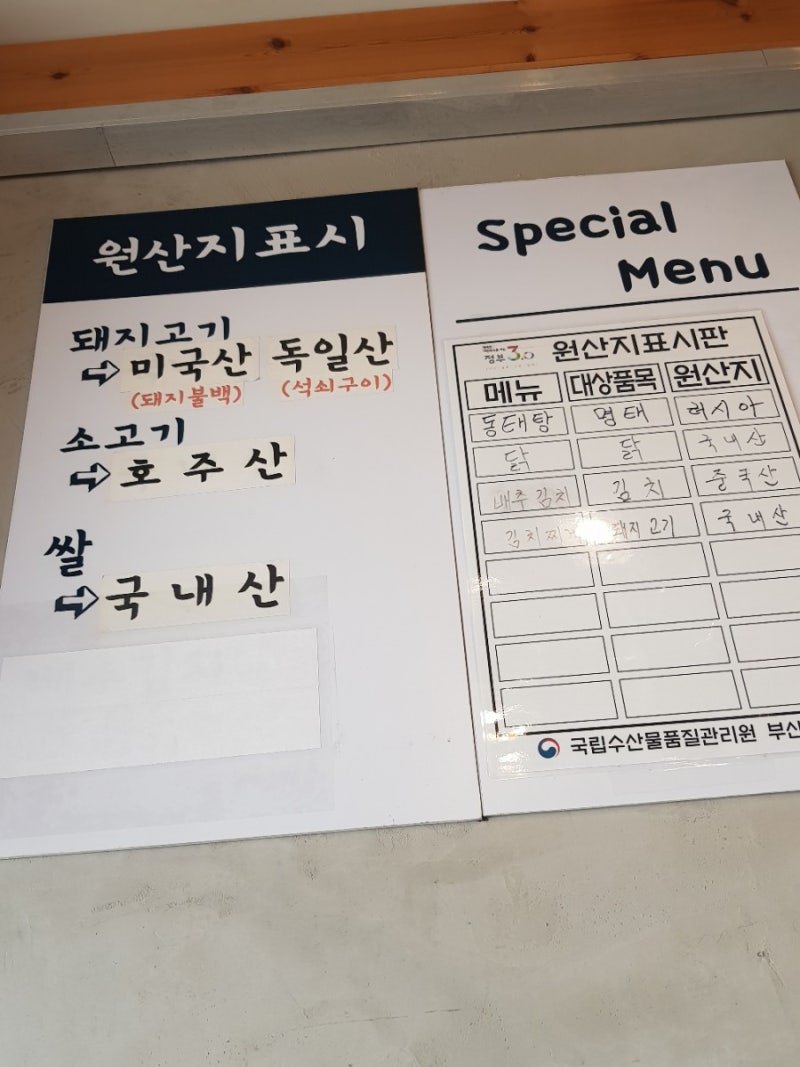 원산지표시
돼지고기
⇨ 미국산 독일산
(돼지불백) (석쇠구이)
소고기
⇨ 호주산
쌀
⇨ 국내산
Special
Menu
정부3.0 원산지표시판
메뉴 대상품목 원산지
동태탕 명태 러시아
닭 닭 국내산
배추김치 김치 중국산
김치찌 돼지고기 국내산
국립수산물품질관리원 부산